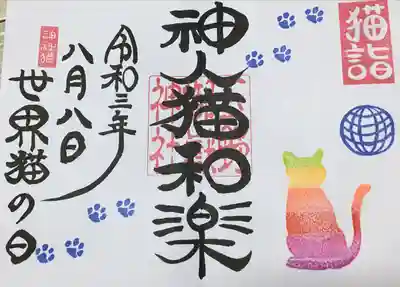 猫詣
神人猫和楽
令和三年
八月八日
世界猫の日